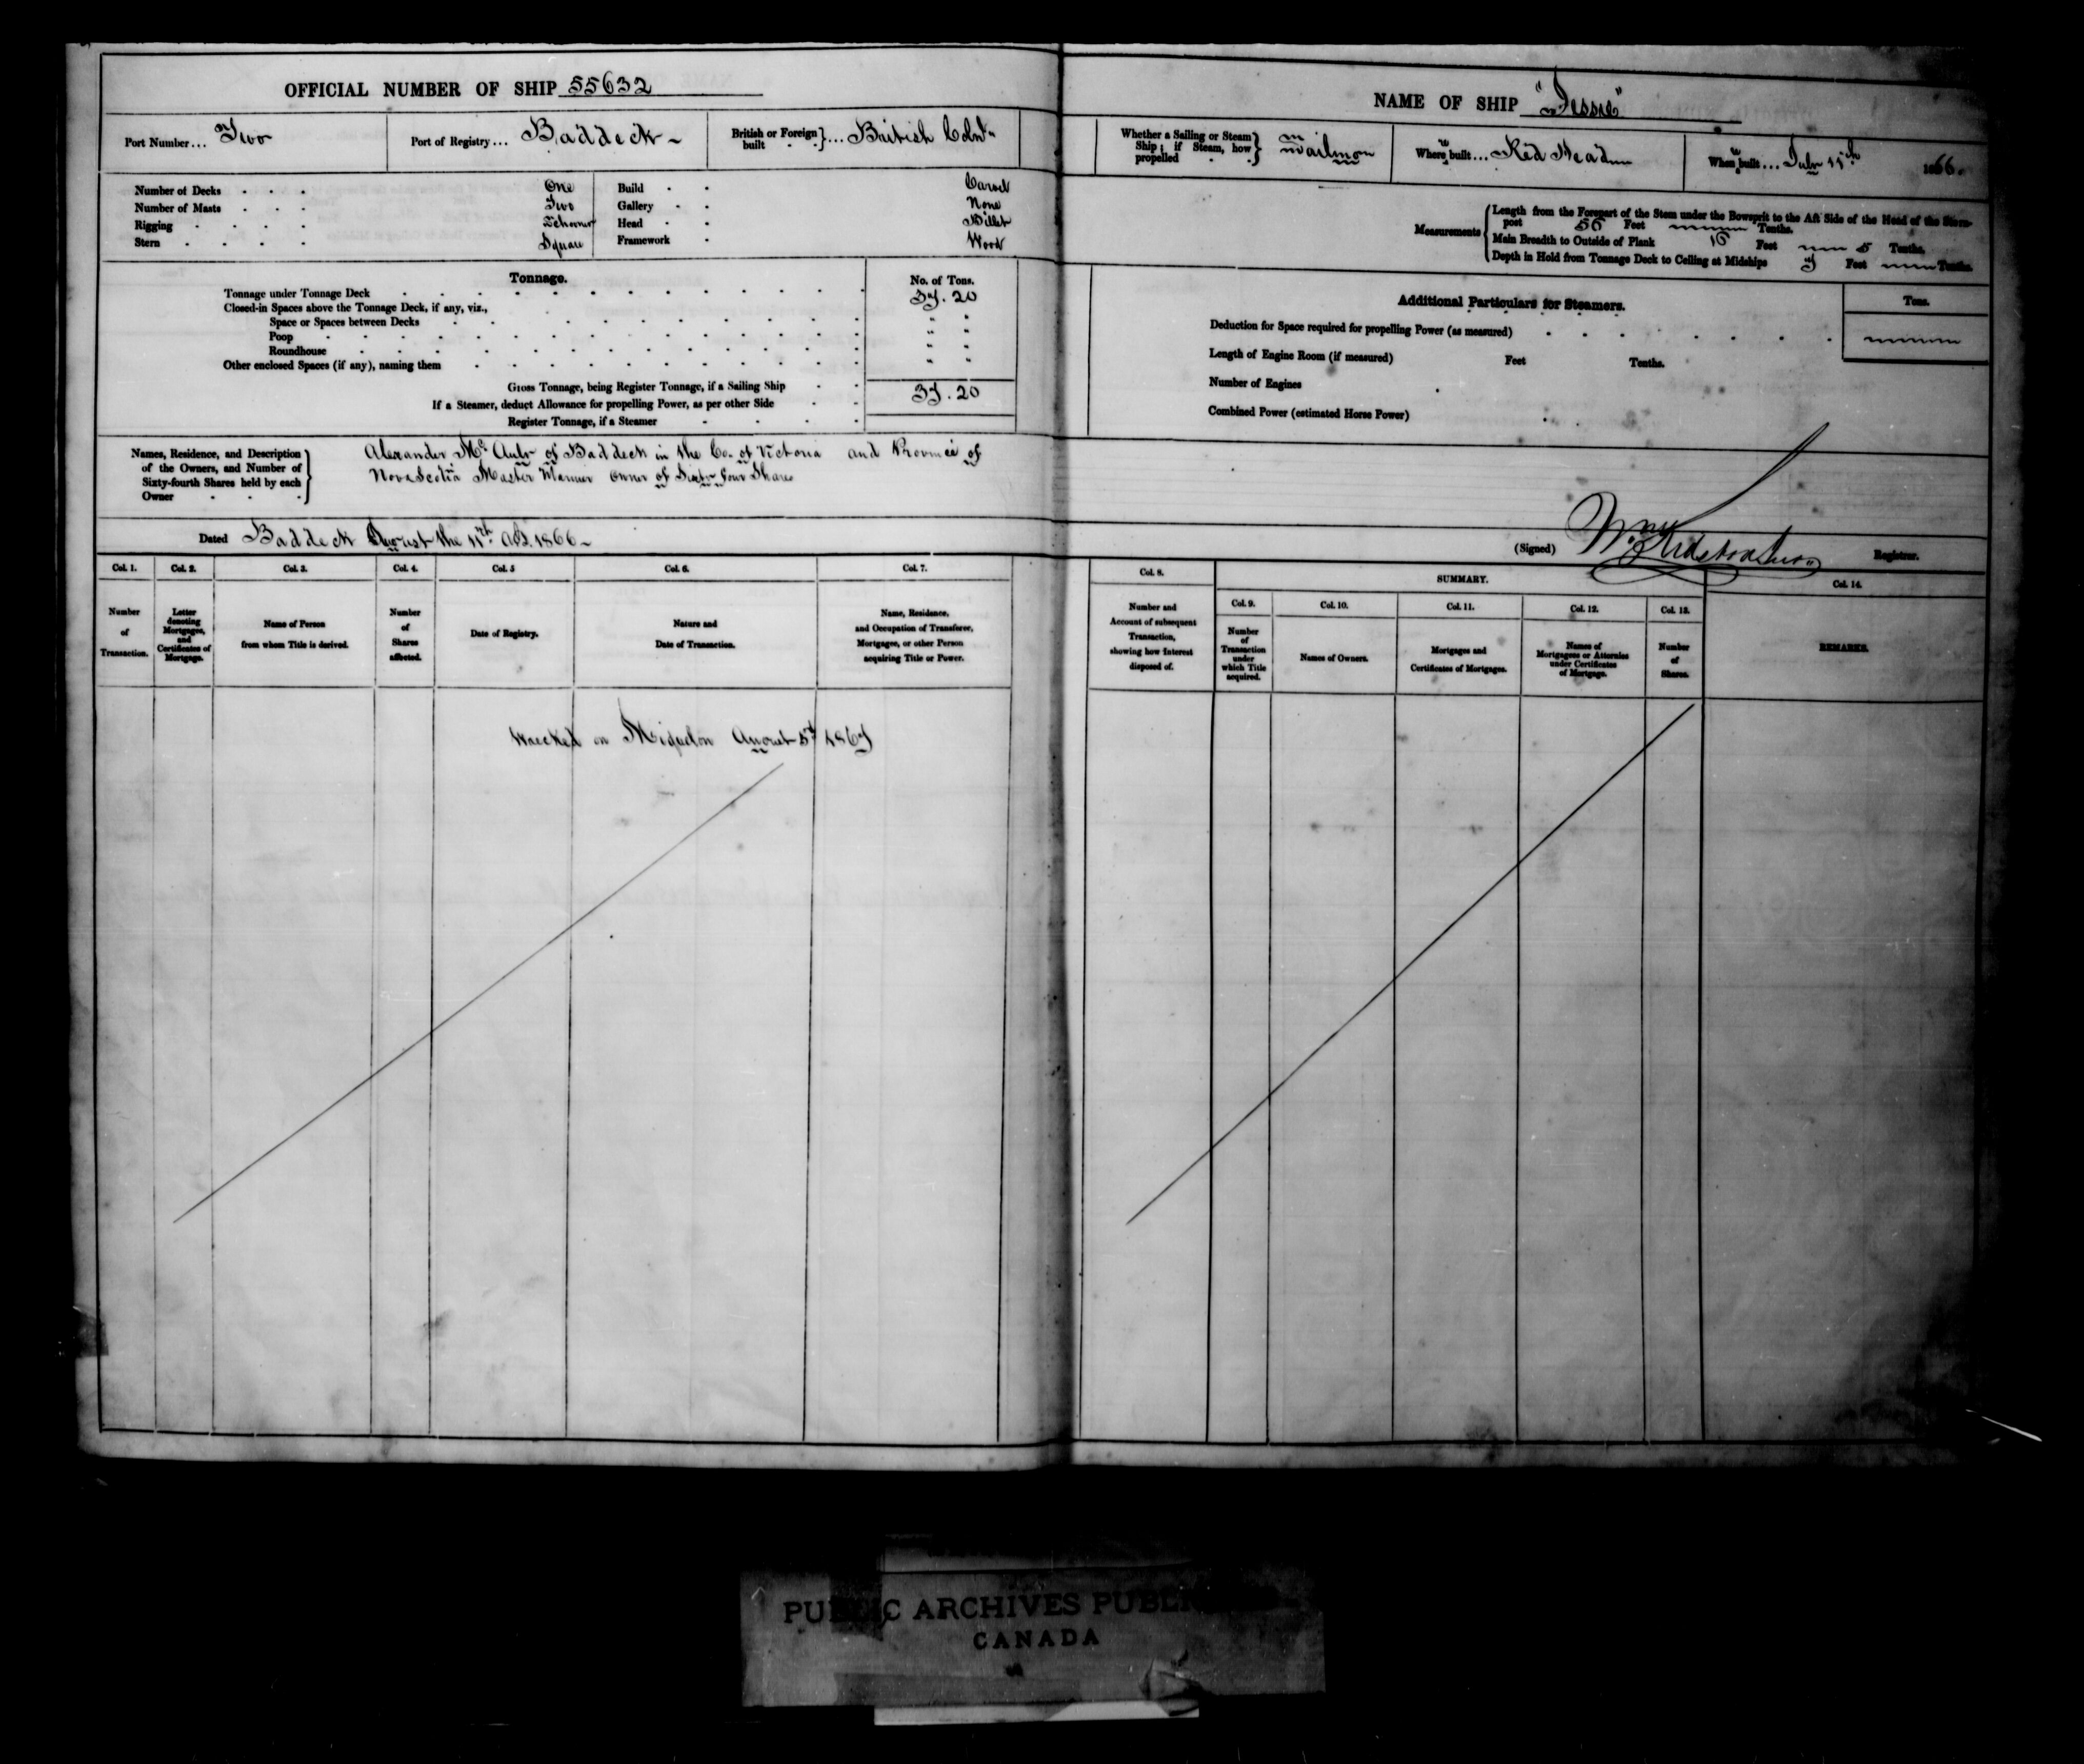 OFFICIAL NUMBER OF SHIP 55632
Port Number... Two
Port of Registry... Baddeck
British or Foreign built } ... British
Number of Decks One
Number of Masts Two
Rigging Schooner
Stern Square
Build Carvel
Gallery None
Head Billet
Framework Wood
Tonnage.
No. of Tons.
Tonnage under Tonnage Deck 37.20
Closed-in Spaces above the Tonnage Deck, if any, viz.,
Space or Spaces between Decks " "
Poop " "
Roundhouse " "
Other enclosed Spaces (if any), naming them " "
Gross Tonnage, being Register Tonnage, if a Sailing Ship 37.20
If a Steamer, deduct Allowance for propelling Power, as per other Side
Register Tonnage, if a Steamer
Names, Residence, and Description of the Owners, and Number of Sixty-fourth Shares held by each Owner
Alexander of Baddeck in the Co. of Victoria and Province of
Nova Scotia Master Mariner owner of Sixty four Shares
Dated Baddeck August the 11th AD. 1866
Col. 1. Col. 2. Col. 3. Col. 4. Col. 5 Col. 6. Col. 7.
Number of Transaction.
Letter denoting Mortgages, and Certificates of Mortgage.
Name of Person from whom Title is derived.
Number of Shares affected.
Date of Registry.
Nature and Date of Transaction.
Name, Residence, and Occupation of Transferee, Mortgagee, or other Person acquiring Title or Power.
Wrecked on Miquelon August 5th 1867
NAME OF SHIP "Jessie"
Whether a Sailing or Steam Ship; if Steam, how propelled
Where built... Red Head
When built... July 11th 1866.
Measurements
Length from the Forepart of the Stem under the Bowsprit to the Aft Side of the Head of the Stern-
post 56 Feet Tenths.
Main Breadth to Outside of Plank 16 Feet 5 Tenths.
Depth in Hold from Tonnage Deck to Ceiling at Midships 7 Feet Tenths.
Additional Particulars for Steamers.
Tons.
Deduction for Space required for propelling Power (as measured)
Length of Engine Room (if measured) Feet Tenths.
Number of Engines
Combined Power (estimated Horse Power)
(Signed) Registrar.
Col. 8.
SUMMARY.
Col. 14.
Col. 9. Col. 10. Col. 11. Col. 12. Col. 13.
Number and Account of subsequent Transaction, showing how Interest disposed of.
Number of Transaction under which Title acquired.
Names of Owners.
Mortgages and Certificates of Mortgages.
Names of Mortgagees or Attornies under Certificates of Mortgage.
Number of Shares.
REMARKS.
PUBLIC ARCHIVES
CANADA